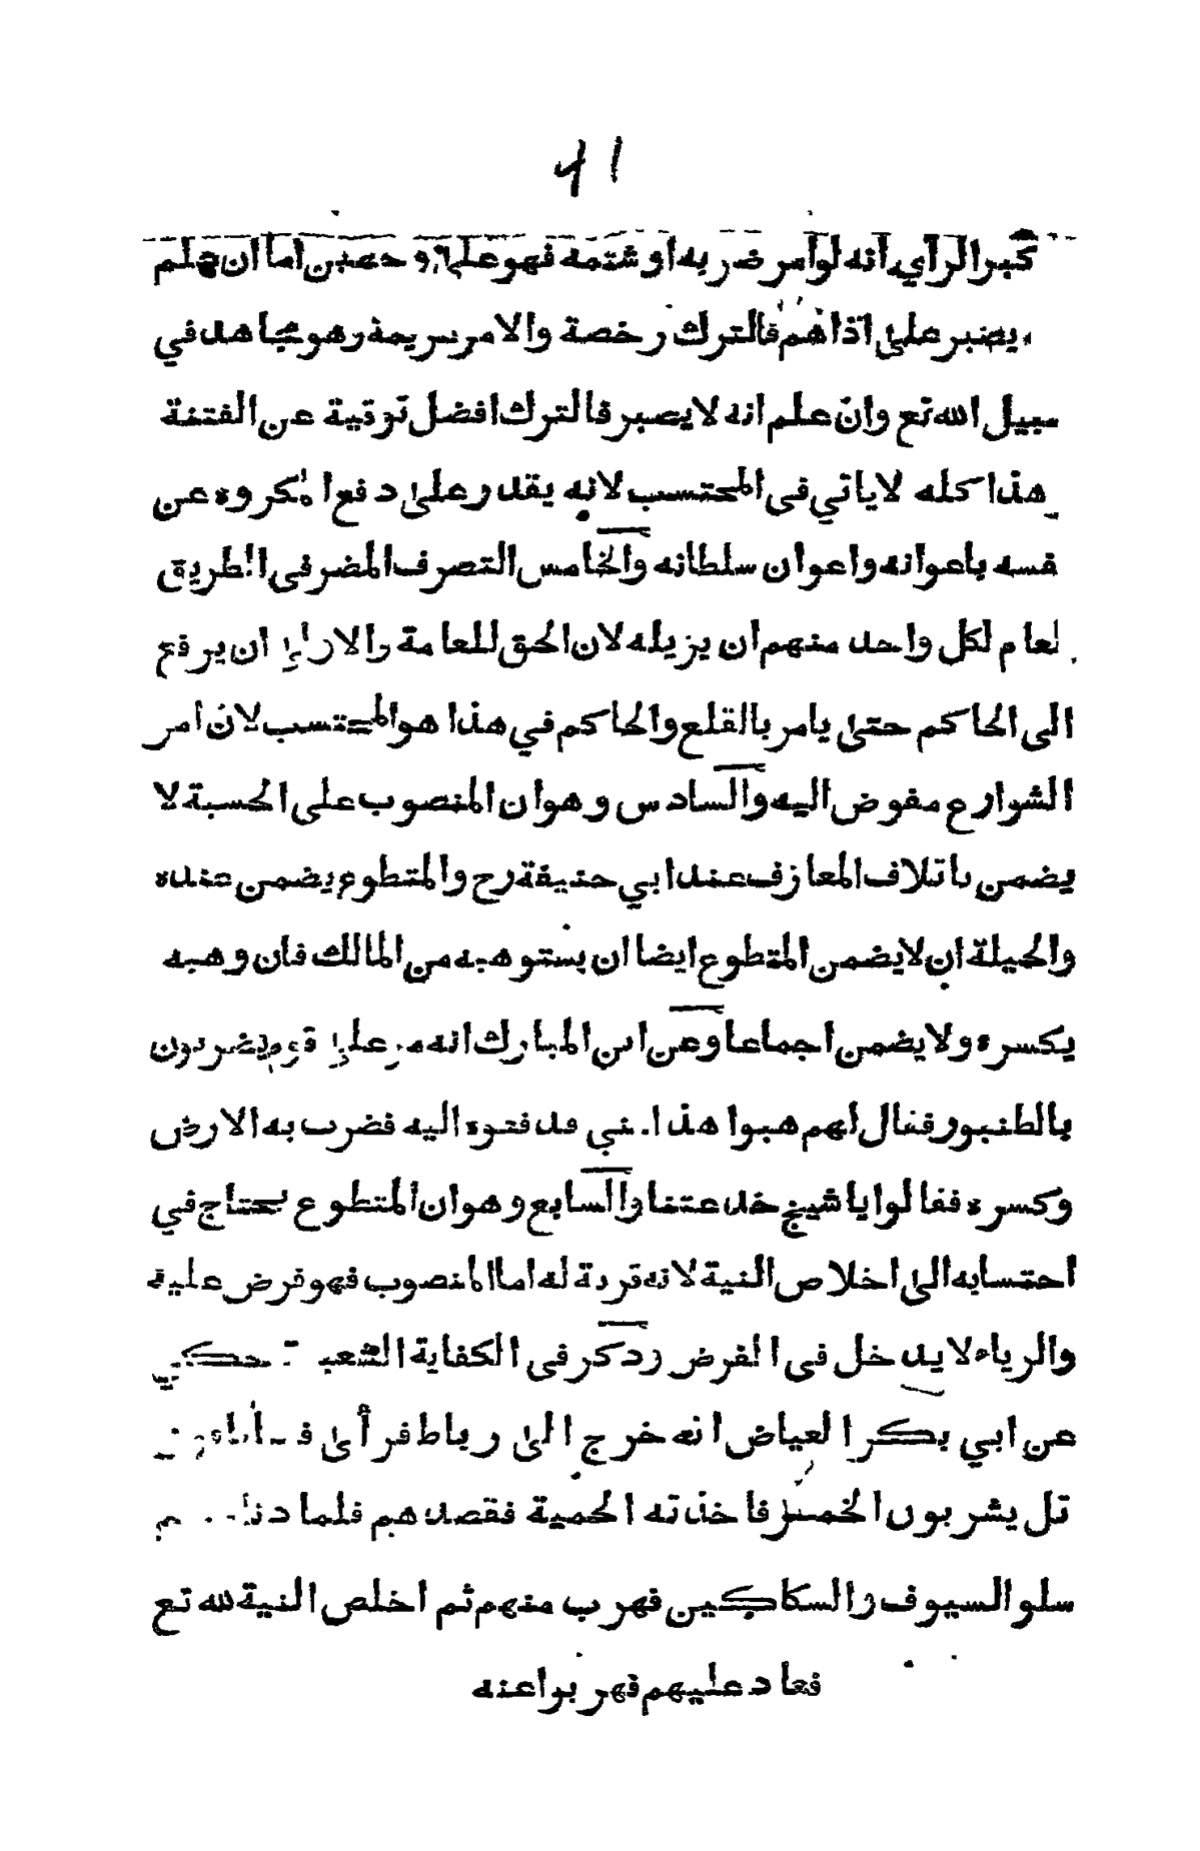 ٤١
كبر الرأي انه لو امر ضربه او شتمه فهو على وجهين اما ان علم
يصبر على اذاهم فالترك رخصة والامر عزيمة وهو مجاهد في
سبيل الله تع وان علم انه لا يصبر فالترك افضل توقية عن الفتنة
هذا كله لا ياتي في المحتسب لانه يقدر على دفع المكروه عن
فسه باعوانه واعوان سلطانه والخامس التصرف المضر في الطريق
لعام لكل واحد منهم ان يزيله لان الحق للعامة والاولى ان يرفع
الى الحاكم حتى يامر بالقلع والحاكم في هذا هو المحتسب لان امر
الشوارع مفوض اليه والسادس وهو ان المنصوب على الحسبة لا
يضمن باتلاف المعازف عند ابي حنيفة رح والمتطوع يضمن عنده
والحيلة ان لا يضمن المتطوع ايضا ان يستوهبه من المالك فان وهبه
يكسره ولا يضمن اجماعا وعن ابن المبارك انه مر على قوم يضربون
بالطنبور فقال لهم هبوا هذا مني فدفعوه اليه فضرب به الارض
وكسره فقالوا يا شيخ خدعتنا والسابع وهو ان المتطوع يحتاج في
احتسابه الى اخلاص النية لانه قربة له اما المنصوب فهو فرض عليه
والرياء لا يدخل في الفرض وذكر في الكفاية الشعبية حكي
عن ابي بكر العياض انه خرج الى رباط فرأى في
تل يشربون الخمر فاخذته الحمية فقصدهم فلما دنا
سلو السيوف والسكاكين فهرب منهم ثم اخلص النية لله تع
فعاد عليهم فهربوا عنه